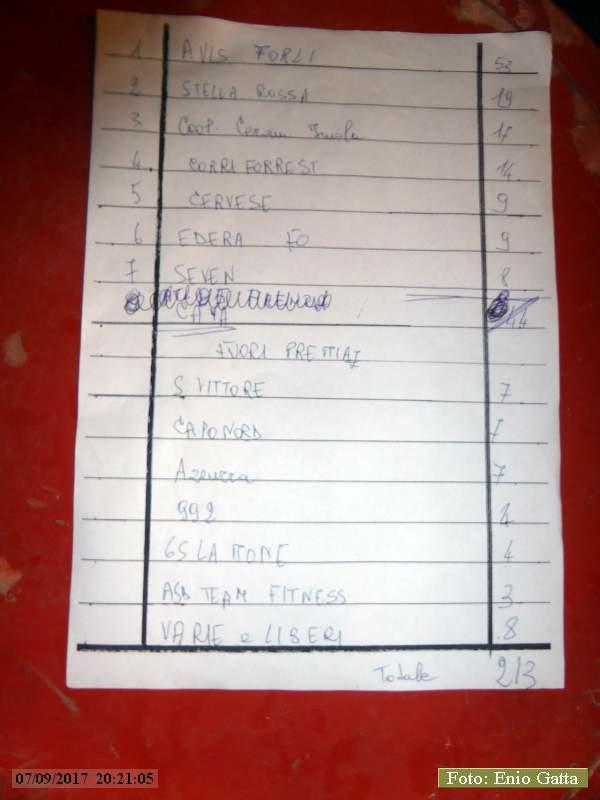 1 AVIS FORLI 53
2 STELLA ROSSA 19
3 Coop. Ceram Imola 17
4 CORRI FORREST 14
5 CERVESE 9
6 EDERA FO 9
7 SEVEN 8
CAVA 44
FUORI PREMIAZ
S. VITTORE 7
CAPO NORD 7
Azzurra 7
992 4
GS LAMONE 4
ASD TEAM FITNESS 3
VARIE e LIBERI 8
Totale 213
07/09/2017 20:21:05
Foto: Enio Gatta